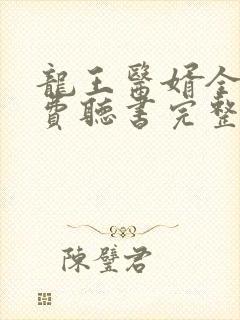 龍王醫婿全
費聽書完整
陳璧君